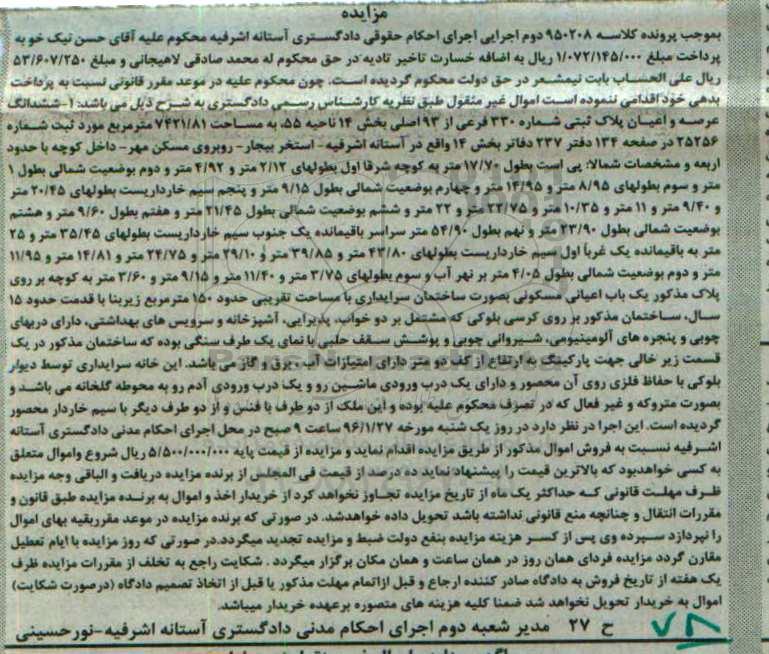 مزایده
بموجب پرونده کلاسه ۹۵۰۲۰۸ دوم اجرایی اجرای احکام حقوقی دادگستری آستانه اشرفیه محکوم علیه آقای حسن نیک خو به
پرداخت مبلغ ۱/۰۷۲/۱۴۵/۰۰۰ ریال به اضافه خسارت تاخیر تادیه در حق محکوم له محمد صادقی لاهیجانی و مبلغ ۵۳/۶۰۷/۲۵۰
ریال علی الحساب بابت نیمعشر در حق دولت محکوم گردیده است. چون محکوم علیه در موعد مقرر قانونی نسبت به پرداخت
بدهی خود اقدامی ننموده است اموال غیر منقول طبق نظریه کارشناس رسمی دادگستری به شرح ذیل می باشد: ۱-ششدانگ
عرصه و اعیان پلاک ثبتی شماره ۳۳۰ فرعی از ۹۳ اصلی بخش ۱۴ ناحیه ۵۵، به مساحت ۷۴۲۱/۸۱ مترمربع مورد ثبت شماره
۲۵۲۵۶ در صفحه ۱۳۴ دفتر ۲۳۷ دفاتر بخش ۱۴ واقع در آستانه اشرفیه- استخر بیجار- روبروی مسکن مهر- داخل کوچه با حدود
اربعه و مشخصات شمالا: پی است بطول ۱۷/۷۰ متر به کوچه شرقا اول بطولهای ۲/۱۲ متر و ۴/۹۲ متر و دوم بوضعیت شمالی بطول ۱
متر و سوم بطولهای ۸/۹۵ متر و ۱۴/۹۵ متر و چهارم بوضعیت شمالی بطول ۹/۱۵ متر و پنجم سیم خارداریست بطولهای ۲۰/۴۵ متر
و ۹/۴۰ متر و ۱۱ متر و ۱۰/۳۵ متر و ۲۲/۷۵ متر و ۲۲ متر و ششم بوضعیت شمالی بطول ۲۱/۴۵ متر و هفتم بطول ۹/۶۰ متر و هشتم
بوضعیت شمالی بطول ۲۳/۹۰ متر و نهم بطول ۵۴/۹۰ متر سراسر باقیمانده یک جنوب سیم خارداریست بطولهای ۳۵/۴۵ متر و ۲۵
متر به باقیمانده یک غرباً اول سیم خارداریست بطولهای ۴۳/۸۰ متر و ۳۹/۸۵ متر و ۲۹/۱۰ متر و ۲۴/۷۵ متر و ۱۴/۸۱ متر و ۱۱/۹۵
متر و دوم بوضعیت شمالی بطول ۴/۰۵ متر بر نهر آب و سوم بطولهای ۳/۷۵ متر و ۱۱/۴۰ متر و ۹/۱۵ متر و ۳/۶۰ متر به کوچه بر روی
پلاک مذکور یک باب اعیانی مسکونی بصورت ساختمان سرایداری با مساحت تقریبی حدود ۱۵۰ مترمربع زیربنا با قدمت حدود ۱۵
سال، ساختمان مذکور بر روی کرسی بلوکی که مشتمل بر دو خواب، پذیرایی، آشپزخانه و سرویس های بهداشتی، دارای دربهای
چوبی و پنجره های آلومینیومی، شیروانی چوبی و پوشش سقف حلبی با نمای یک طرف سنگی بوده که ساختمان مذکور در یک
قسمت زیر خالی جهت پارکینگ به ارتفاع از کف دو متر دارای امتیازات آب، برق و گاز می باشد. این خانه سرایداری توسط دیوار
بلوکی با حفاظ فلزی روی آن محصور و دارای یک درب ورودی ماشین رو و یک درب ورودی آدم رو به محوطه گلخانه می باشد و
بصورت متروکه و غیر فعال که در تصرف محکوم علیه بوده و این ملک از دو طرف با فنس و از دو طرف دیگر با سیم خاردار محصور
گردیده است. این اجرا در نظر دارد در روز یک شنبه مورخه ۹۶/۱/۲۷ ساعت ۹ صبح در محل اجرای احکام مدنی دادگستری آستانه
اشرفیه نسبت به فروش اموال مذکور از طریق مزایده اقدام نماید و مزایده از قیمت پایه ۵/۵۰۰/۰۰۰/۰۰۰ ریال شروع واموال متعلق
به کسی خواهدبود که بالاترین قیمت را پیشنهاد نماید ده درصد از قیمت فی المجلس از برنده مزایده دریافت و الباقی وجه مزایده
ظرف مهلت قانونی که حداکثر یک ماه از تاریخ مزایده تجاوز نخواهد کرد از خریدار اخذ و اموال به برنده مزایده طبق قانون و
مقررات انتقال و چنانچه منع قانونی نداشته باشد تحویل داده خواهدشد. در صورتی که برنده مزایده در موعد مقرربقیه بهای اموال
را نپردازد سپرده وی پس از کسر هزینه مزایده بنفع دولت ضبط و مزایده تجدید میگردد.در صورتی که روز مزایده با ایام تعطیل
مقارن گردد مزایده فردای همان روز در همان ساعت و همان مکان برگزار میگردد . شکایت راجع به تخلف از مقررات مزایده ظرف
یک هفته از تاریخ فروش به دادگاه صادر کننده ارجاع و قبل ازاتمام مهلت مذکور یا قبل از اتخاذ تصمیم دادگاه (درصورت شکایت)
اموال به خریدار تحویل نخواهد شد ضمنا کلیه هزینه های متصوره برعهده خریدار میباشد.
ح ۲۷ مدیر شعبه دوم اجرای احکام مدنی دادگستری آستانه اشرفیه-نورحسینی
۷۸